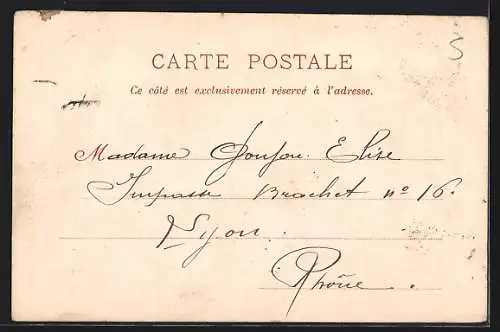 CARTE POSTALE
Ce côté est exclusivement réservé à l'adresse.
S
Madame Joujou Elise
Impasse Brachet nº 16.
Lyon
Rhône.